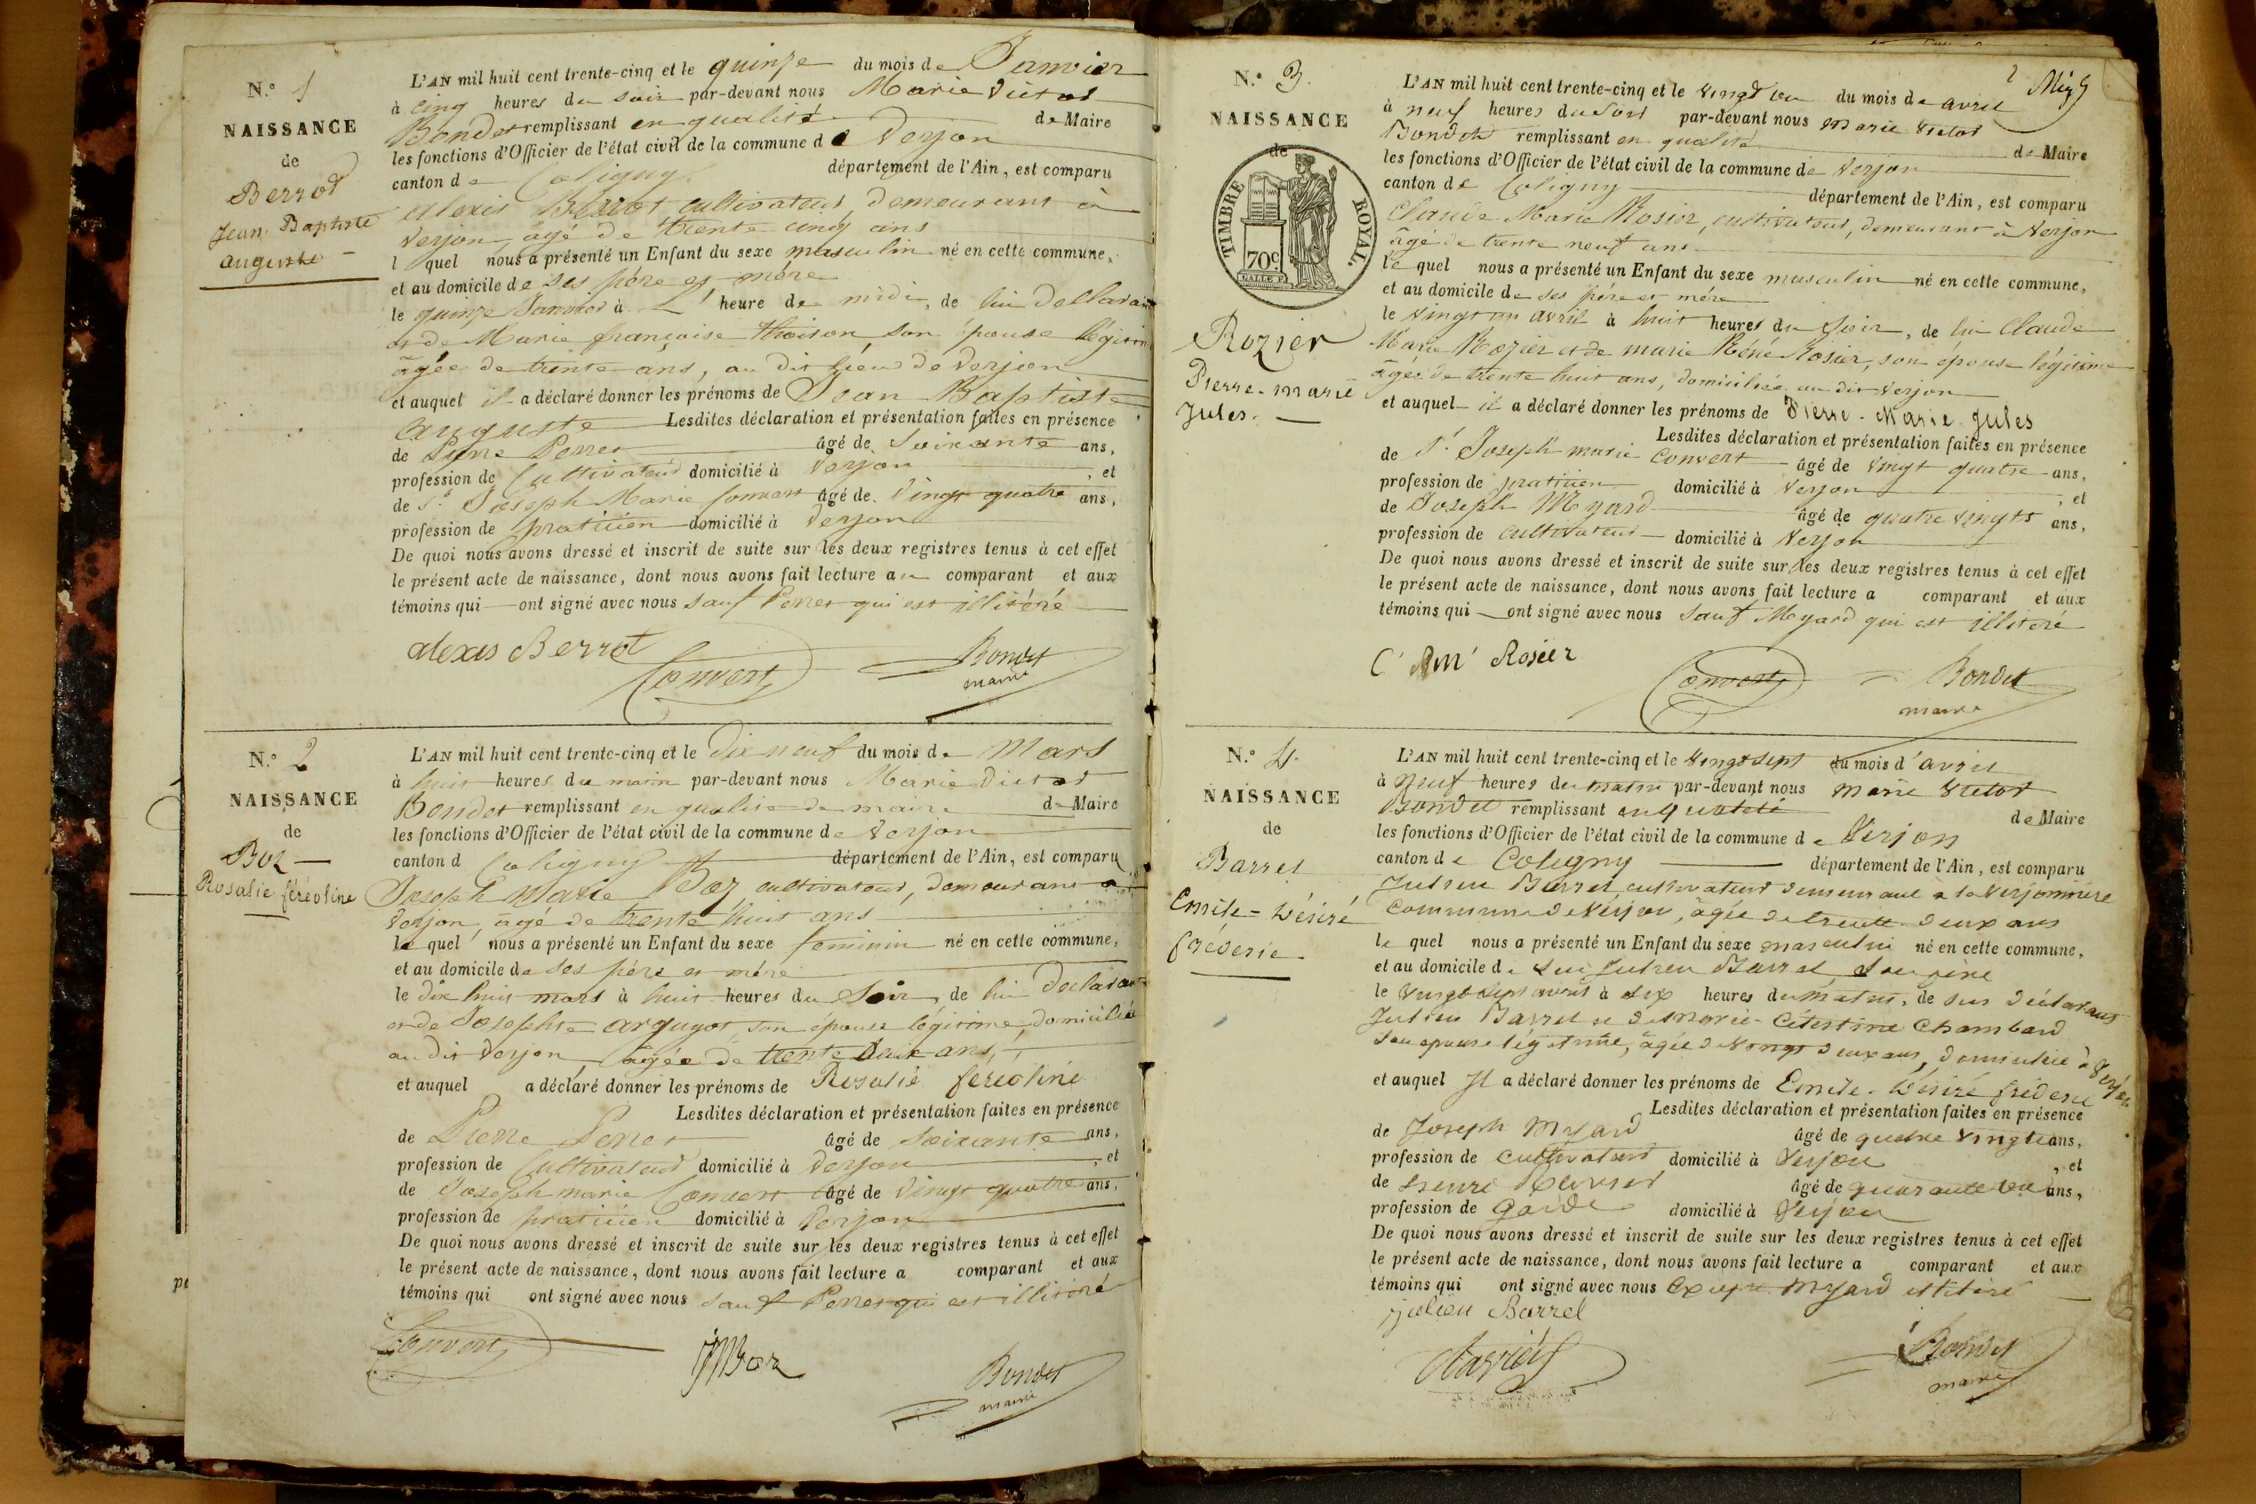 N.° 1
NAISSANCE
de
Berrod
Jean Baptiste
auguste
L'AN mil huit cent trente-cinq et le quinze du mois de Janvier
à cinq heures du soir par-devant nous Marie Victor
Bondet remplissant en qualité de Maire
les fonctions d'Officier de l'état civil de la commune de Verjon
canton de Coligny département de l'Ain, est comparu
alexis Berrot cultivateur, demeurant à
Verjon, âgé de trente cinq ans
l quel nous a présenté un Enfant du sexe masculin né en cette commune,
et au domicile de ses père et mère
le quinze Janvier à L' heure de midi, de lui Déclarant
et de Marie françoise Thoison, son épouse légitime
âgée de trente ans, au dit lieu de Verjon
et auquel il a déclaré donner les prénoms de Jean Baptiste
auguste Lesdites déclaration et présentation faites en présence
de Pierre Perret âgé de Soixante ans,
profession de Cultivateur domicilié à Verjon, et
de Sr. Joseph Marie Convert âgé de Vingt quatre ans,
profession de praticien domicilié à Verjon
De quoi nous avons dressé et inscrit de suite sur les deux registres tenus à cet effet
le présent acte de naissance, dont nous avons fait lecture au comparant et aux
témoins qui ont signé avec nous sauf Perret qui est illitéré
alexis Berrot
Convert
Bondet
maire
N.° 2
NAISSANCE
de
Boz
Rosalie féréoline
L'AN mil huit cent trente-cinq et le Dix neuf du mois de Mars
à huit heures du matin par-devant nous Marie Victor
Bondet remplissant en qualité de maire de Maire
les fonctions d'Officier de l'état civil de la commune de Verjon
canton d Coligny département de l'Ain, est comparu
Joseph Marie Boz cultivateur, demeurant à
Verjon, âgé de trente huit ans
le quel nous a présenté un Enfant du sexe feminin né en cette commune,
et au domicile de ses père et mère
le dix huit mars à huit heures du Soir, de lui Déclarant
et de Josephte arguyot, son épouse légitime, domiciliée
au dit Verjon, âgée de trente deux ans,
et auquel a déclaré donner les prénoms de Rosalie fereoline
Lesdites déclaration et présentation faites en présence
de Pierre Perret âgé de soixante ans,
profession de Cultivateur domicilié à Verjon, et
de Joseph marie Convert âgé de Vingt quatre ans,
profession de praticien domicilié à Verjon
De quoi nous avons dressé et inscrit de suite sur les deux registres tenus à cet effet
le présent acte de naissance, dont nous avons fait lecture a comparant et aux
témoins qui ont signé avec nous sauf Perret qui est illitéré
Convert
JMBoz
Bondet
maire
N.° 3.
NAISSANCE
de
TIMBRE ROYAL.
70c.
Rozier
Pierre-marie
Jules.
L'AN mil huit cent trente-cinq et le vingt un du mois de avril
à neuf heures du Soir par-devant nous Marie Victor
Bondet remplissant en qualité de Maire
les fonctions d'Officier de l'état civil de la commune de Verjon
canton de Coligny département de l'Ain, est comparu
Claude Marie Rosier, cultivateur, demeurant à Verjon
âgé de trente neuf ans
le quel nous a présenté un Enfant du sexe masculin né en cette commune,
et au domicile de ses père et mère
le vingt un avril à huit heures du Soir, de lui Claude
Marie Rozier et de marie Réné Rosier, son épouse légitime
âgée de trente huit ans, domiciliée au dit Verjon
et auquel il a déclaré donner les prénoms de Pierre-Marie Jules
Lesdites déclaration et présentation faites en présence
de Sr. Joseph marie Convert âgé de vingt quatre ans,
profession de praticien domicilié à Verjon, et
de Joseph Myard âgé de quatre vingts ans,
profession de cultivateur domicilié à Verjon
De quoi nous avons dressé et inscrit de suite sur les deux registres tenus à cet effet
le présent acte de naissance, dont nous avons fait lecture a comparant et aux
témoins qui ont signé avec nous sauf Myard qui est illitéré
Rosier
Convert
Bondet
maire
N.° 4.
NAISSANCE
de
Barrel
Emile-Désiré
fréderic
L'AN mil huit cent trente-cinq et le vingt sept du mois d'avril
à neuf heures du matin par-devant nous Marie Victor
Bondet remplissant en qualité de Maire
les fonctions d'Officier de l'état civil de la commune de Verjon
canton de Coligny département de l'Ain, est comparu
Julien Barrel cultivateur demeurant à la Verjonnière
commune de Verjon, âgée de trente deux ans
le quel nous a présenté un Enfant du sexe masculin né en cette commune,
et au domicile de lui Julien Barrel son père
le vingt sept avril à six heures du matin, de lui déclarant
Julien Barrel et de Marie-Célestine Chambard
son épouse légitime, agée de vingt deux ans, domiciliée à Verjon
et auquel Il a déclaré donner les prénoms de Emile-Désiré fréderic
Lesdites déclaration et présentation faites en présence
de Joseph Myard âgé de quatre vingt ans,
profession de cultivateur domicilié à Verjon, et
de âgé de quarante ans,
profession de Garde domicilié à Verjon
De quoi nous avons dressé et inscrit de suite sur les deux registres tenus à cet effet
le présent acte de naissance, dont nous avons fait lecture a comparant et aux
témoins qui ont signé avec nous Excepté Myard illitéré
Julien Barrel
Bondet
maire